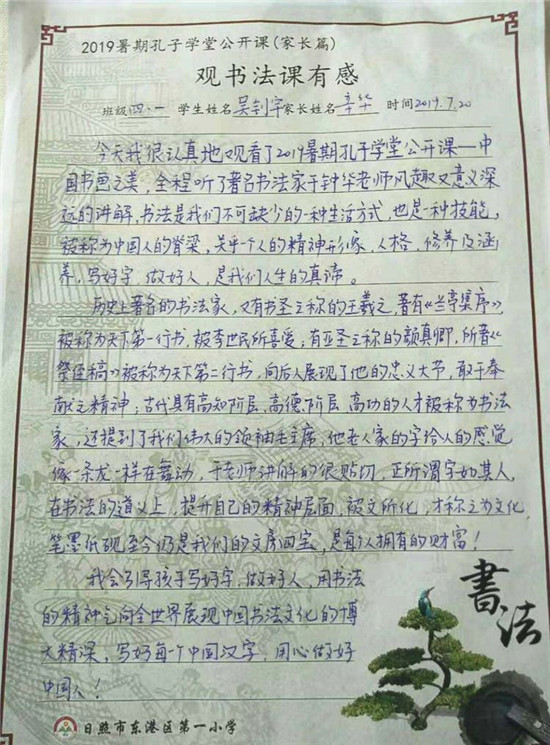 2019暑期孔子学堂公开课(家长篇)
观书法课有感
班级四·一 学生姓名吴钊宇家长姓名辛华 时间2019.7.20
今天我很认真地观看了2019暑期孔子学堂公开课——中
国书画之美,全程听了著名书法家于钟华老师风趣又意义深
远的讲解,书法是我们不可缺少的一种生活方式,也是一种技能,
被称为中国人的脊梁,关乎个人的精神形象、人格、修养及涵
养,写好字,做好人,是我们人生的真谛。
历史上著名的书法家,又有书圣之称的王羲之,著有《兰亭集序》,
被称为天下第一行书,被李世民所喜爱;有亚圣之称的颜真卿,所著《
祭侄稿》被称为天下第二行书,向后人展现了他的忠义大节,敢于奉
献之精神;古代具有高知阶层、高德阶层、高功的人才被称为书法
家,还提到了我们伟大的领袖毛主席,他老人家的字给人的感觉
像一条龙一样在舞动,于老师讲解的很贴切,正所谓字如其人,
在书法的道义上,提升自己的精神层面,被文所化,才称之为文化,
笔墨纸砚至今仍是我们的文房四宝,是每个人拥有的财富!
我会引导孩子写好字,做好人,用书法
的精神之向全世界展现中国书法文化的博
大精深,写好每个中国汉字,用心做好
中国人!
書法
日照市东港区第一小学